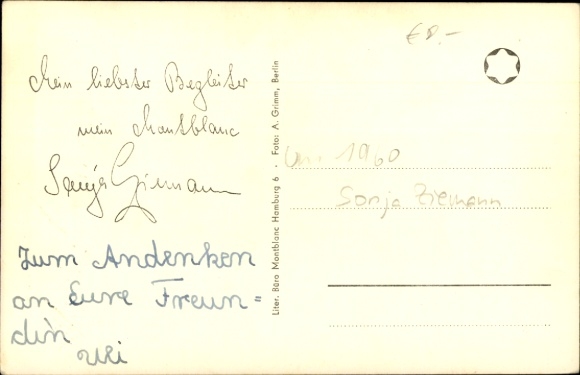 Mein liebster Begleiter
mein Montblanc
Sonja Ziemann
Zum Andenken
an Eure Freun=
din
Uli
Liter. Büro Montblanc Hamburg 6 · Foto: A. Grimm, Berlin
€8,-
um 1960
Sonja Ziemann